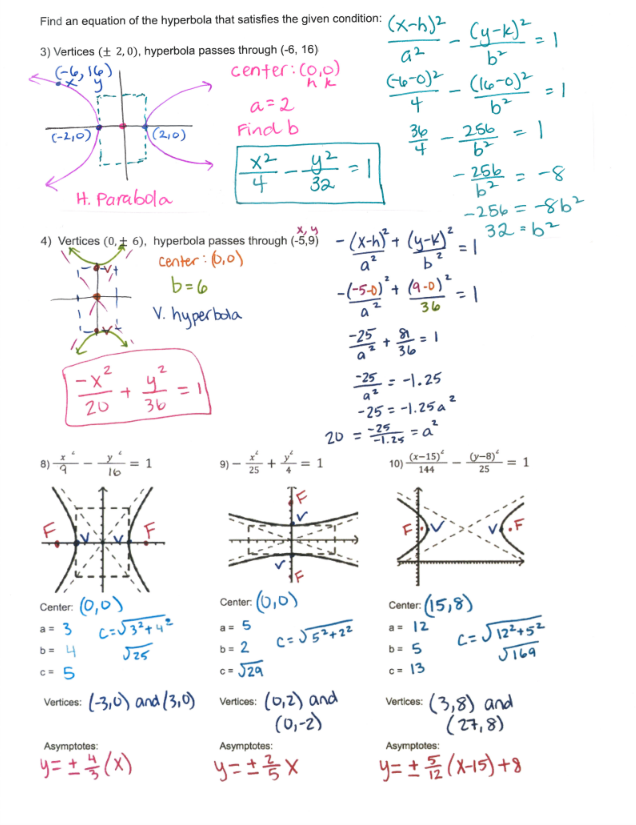 Find an equation of the hyperbola that satisfies the given condition:
(x-h)²/a² - (y-k)²/b² = 1
3) Vertices (± 2, 0), hyperbola passes through (-6, 16)
(-6,16)
x y
(-2,0)
(2,0)
H. Parabola
center: (0,0)
h k
a = 2
Find b
x²/4 - y²/32 = 1
(-6-0)²/4 - (16-0)²/b² = 1
36/4 - 256/b² = 1
- 256/b² = -8
-256 = -8b²
32 = b²
4) Vertices (0, ± 6), hyperbola passes through (-5,9)
x, y
V
V
center: (0,0)
b = 6
V. hyperbola
-x²/20 + y²/36 = 1
-(x-h)²/a² + (y-k)²/b² = 1
-(-5-0)²/a² + (9-0)²/36 = 1
-25/a² + 81/36 = 1
-25/a² = -1.25
-25 = -1.25a²
20 = -25/-1.25 = a²
8) x²/9 - y²/16 = 1
F V V F
Center: (0,0)
a = 3
b = 4
c = 5
c=√3²+4²
√25
Vertices: (-3,0) and (3,0)
Asymptotes:
y = ± 4/3 (x)
9) - x²/25 + y²/4 = 1
F
V
V
F
Center: (0,0)
a = 5
b = 2
c = √29
c = √5²+2²
Vertices: (0,2) and
(0,-2)
Asymptotes:
y = ± 2/5 x
10) (x-15)²/144 - (y-8)²/25 = 1
F V V F
Center: (15,8)
a = 12
b = 5
c = 13
c = √12²+5²
√169
Vertices: (3,8) and
(27,8)
Asymptotes:
y = ± 5/12 (x-15)+8